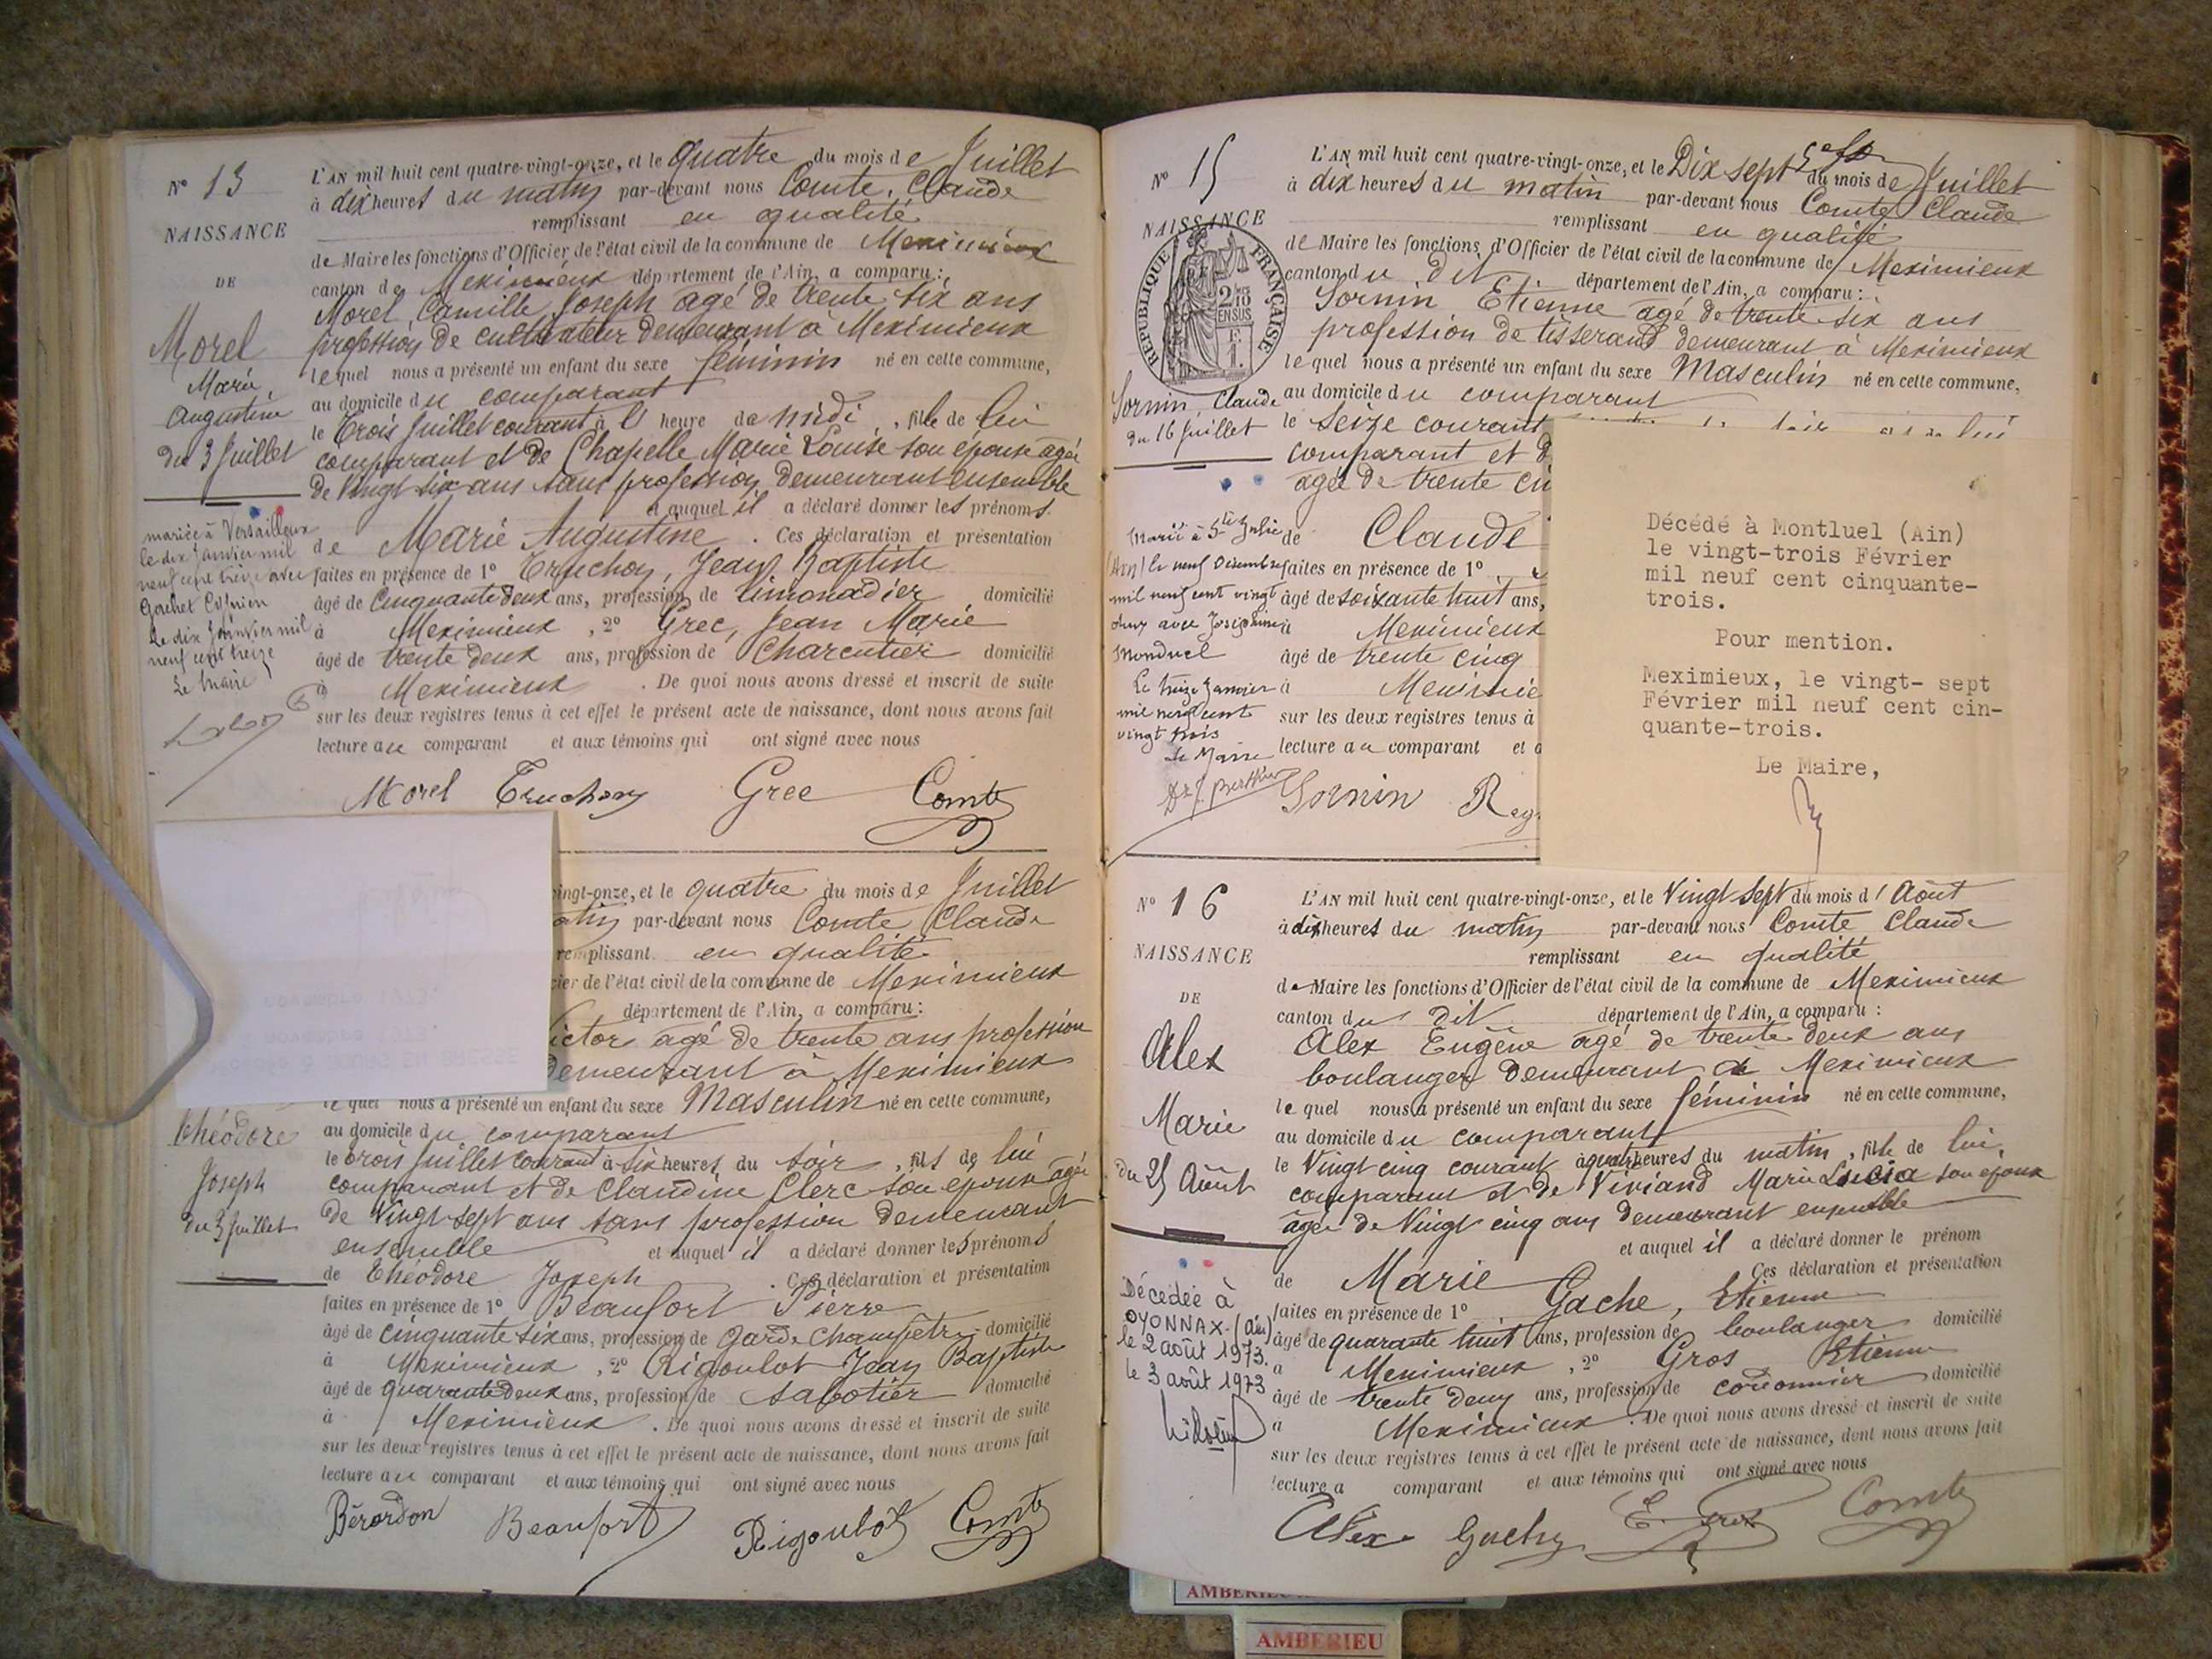 Nº 13
NAISSANCE
DE
Morel
Marie
Augustine
du 3 Juillet
mariée à Versailleux
le dix Janvier mil
neuf cent treize avec
Gachet Cyprien
Le dix Janvier mil
neuf cent treize
Le Maire
L'AN mil huit cent quatre-vingt-onze, et le Quatre du mois de Juillet
à dix heures du matin par-devant nous Comte, Claude
remplissant en qualité
de Maire les fonctions d'Officier de l'état civil de la commune de Meximieux
canton de Meximieux département de l'Ain, a comparu :
Morel Camille Joseph agé de trente six ans
profession de cultivateur demeurant à Meximieux
lequel nous a présenté un enfant du sexe féminin né en cette commune,
au domicile du comparant
le trois Juillet courant à l heure de midi, fille de lui
comparant et de Chapelle Marie Louise son épouse agée
de vingt six ans sans profession, demeurant ensemble
et auquel il a déclaré donner les prénoms
de Marie Augustine. Ces déclaration et présentation
faites en présence de 1º Truchon, Jean Baptiste
âgé de Cinquante deux ans, profession de limonadier domicilié
à Meximieux, 2º Grec, Jean Marie
âgé de trente deux ans, profession de Charcutier domicilié
à Meximieux. De quoi nous avons dressé et inscrit de suite
sur les deux registres tenus à cet effet le présent acte de naissance, dont nous avons fait
lecture au comparant et aux témoins qui ont signé avec nous
Morel Truchon Grec Comte
Théodore
Joseph
du 3 Juillet
vingt-onze, et le quatre du mois de Juillet
atin par-devant nous Comte Claude
remplissant en qualité
cier de l'état civil de la commune de Meximieux
département de l'Ain, a comparu :
ictor agé de trente ans profession
demeurant à Meximieux
le quel nous a présenté un enfant du sexe Masculin né en cette commune,
au domicile du comparant
le trois Juillet courant à six heures du soir, fils de lui
comparant et de Claudine Clerc son épouse agée
de vingt sept ans sans profession demeurant
ensemble et auquel il a déclaré donner les prénoms
de Théodore Joseph. Ces déclaration et présentation
faites en présence de 1º Beaufort Pierre
âgé de cinquante six ans, profession de Garde Champêtre domicilié
à Meximieux, 2º Rigoulot Jean Baptiste
âgé de quarante deux ans, profession de sabotier domicilié
à Meximieux. De quoi nous avons dressé et inscrit de suite
sur les deux registres tenus à cet effet le présent acte de naissance, dont nous avons fait
lecture au comparant et aux témoins qui ont signé avec nous
Bérardon Beaufort Rigoulot Comte
Nº 15
NAISSANCE
RÉPUBLIQUE FRANÇAISE
2/10
EN SUS
F.
1.
Sornin, Claude
du 16 Juillet
Marié à Ste Julie
(Ain) le neuf Décembre
mil neuf cent vingt
deux avec Joséphine
Monduel
Le treize Janvier
mil neuf cent
vingt trois
Le Maire
Dr J. Berthier
L'AN mil huit cent quatre-vingt-onze, et le Dix sept du mois de Juillet
à dix heures du matin par-devant nous Comte Claude
remplissant en qualité
de Maire les fonctions d'Officier de l'état civil de la commune de Meximieux
canton du dit département de l'Ain, a comparu :
Sornin Etienne agé de trente six ans
profession de tisserand demeurant à Meximieux
le quel nous a présenté un enfant du sexe Masculin né en cette commune,
au domicile du comparant
le Seize courant
comparant et d
agée de trente ci
de Claude
faites en présence de 1º
âgé de soixante huit ans,
à Meximieux
âgé de trente cinq
à Meximie
sur les deux registres tenus à
lecture au comparant et a
Sornin Rey
Décédé à Montluel (Ain)
le vingt-trois Février
mil neuf cent cinquante-
trois.
Pour mention.
Meximieux, le vingt- sept
Février mil neuf cent cin-
quante-trois.
Le Maire,
Nº 16
NAISSANCE
DE
Alex
Marie
du 25 Août
Décédée à
OYONNAX (Ain)
le 2 août 1973.
le 3 août 1973
L'AN mil huit cent quatre-vingt-onze, et le Vingt sept du mois d'Août
à dix heures du matin par-devant nous Comte Claude
remplissant en qualité
de Maire les fonctions d'Officier de l'état civil de la commune de Meximieux
canton du dit département de l'Ain, a comparu :
Alex Eugène agé de trente deux ans
boulanger demeurant à Meximieux
le quel nous a présenté un enfant du sexe féminin né en cette commune,
au domicile du comparant
le Vingt cinq courant à quatre heures du matin, fille de lui,
comparant et de Viviand Marie Lucie son épouse
agée de Vingt cinq ans demeurant ensemble
et auquel il a déclaré donner le prénom
de Marie Ces déclaration et présentation
faites en présence de 1º Gache, Etienne
âgé de quarante huit ans, profession de boulanger domicilié
à Meximieux, 2º Gros Etienne
âgé de trente deux ans, profession de cordonnier domicilié
à Meximieux. De quoi nous avons dressé et inscrit de suite
sur les deux registres tenus à cet effet le présent acte de naissance, dont nous avons fait
lecture a comparant et aux témoins qui ont signé avec nous
Alex Gache E. Gros Comte
AMBERIEU
AMBERIEU